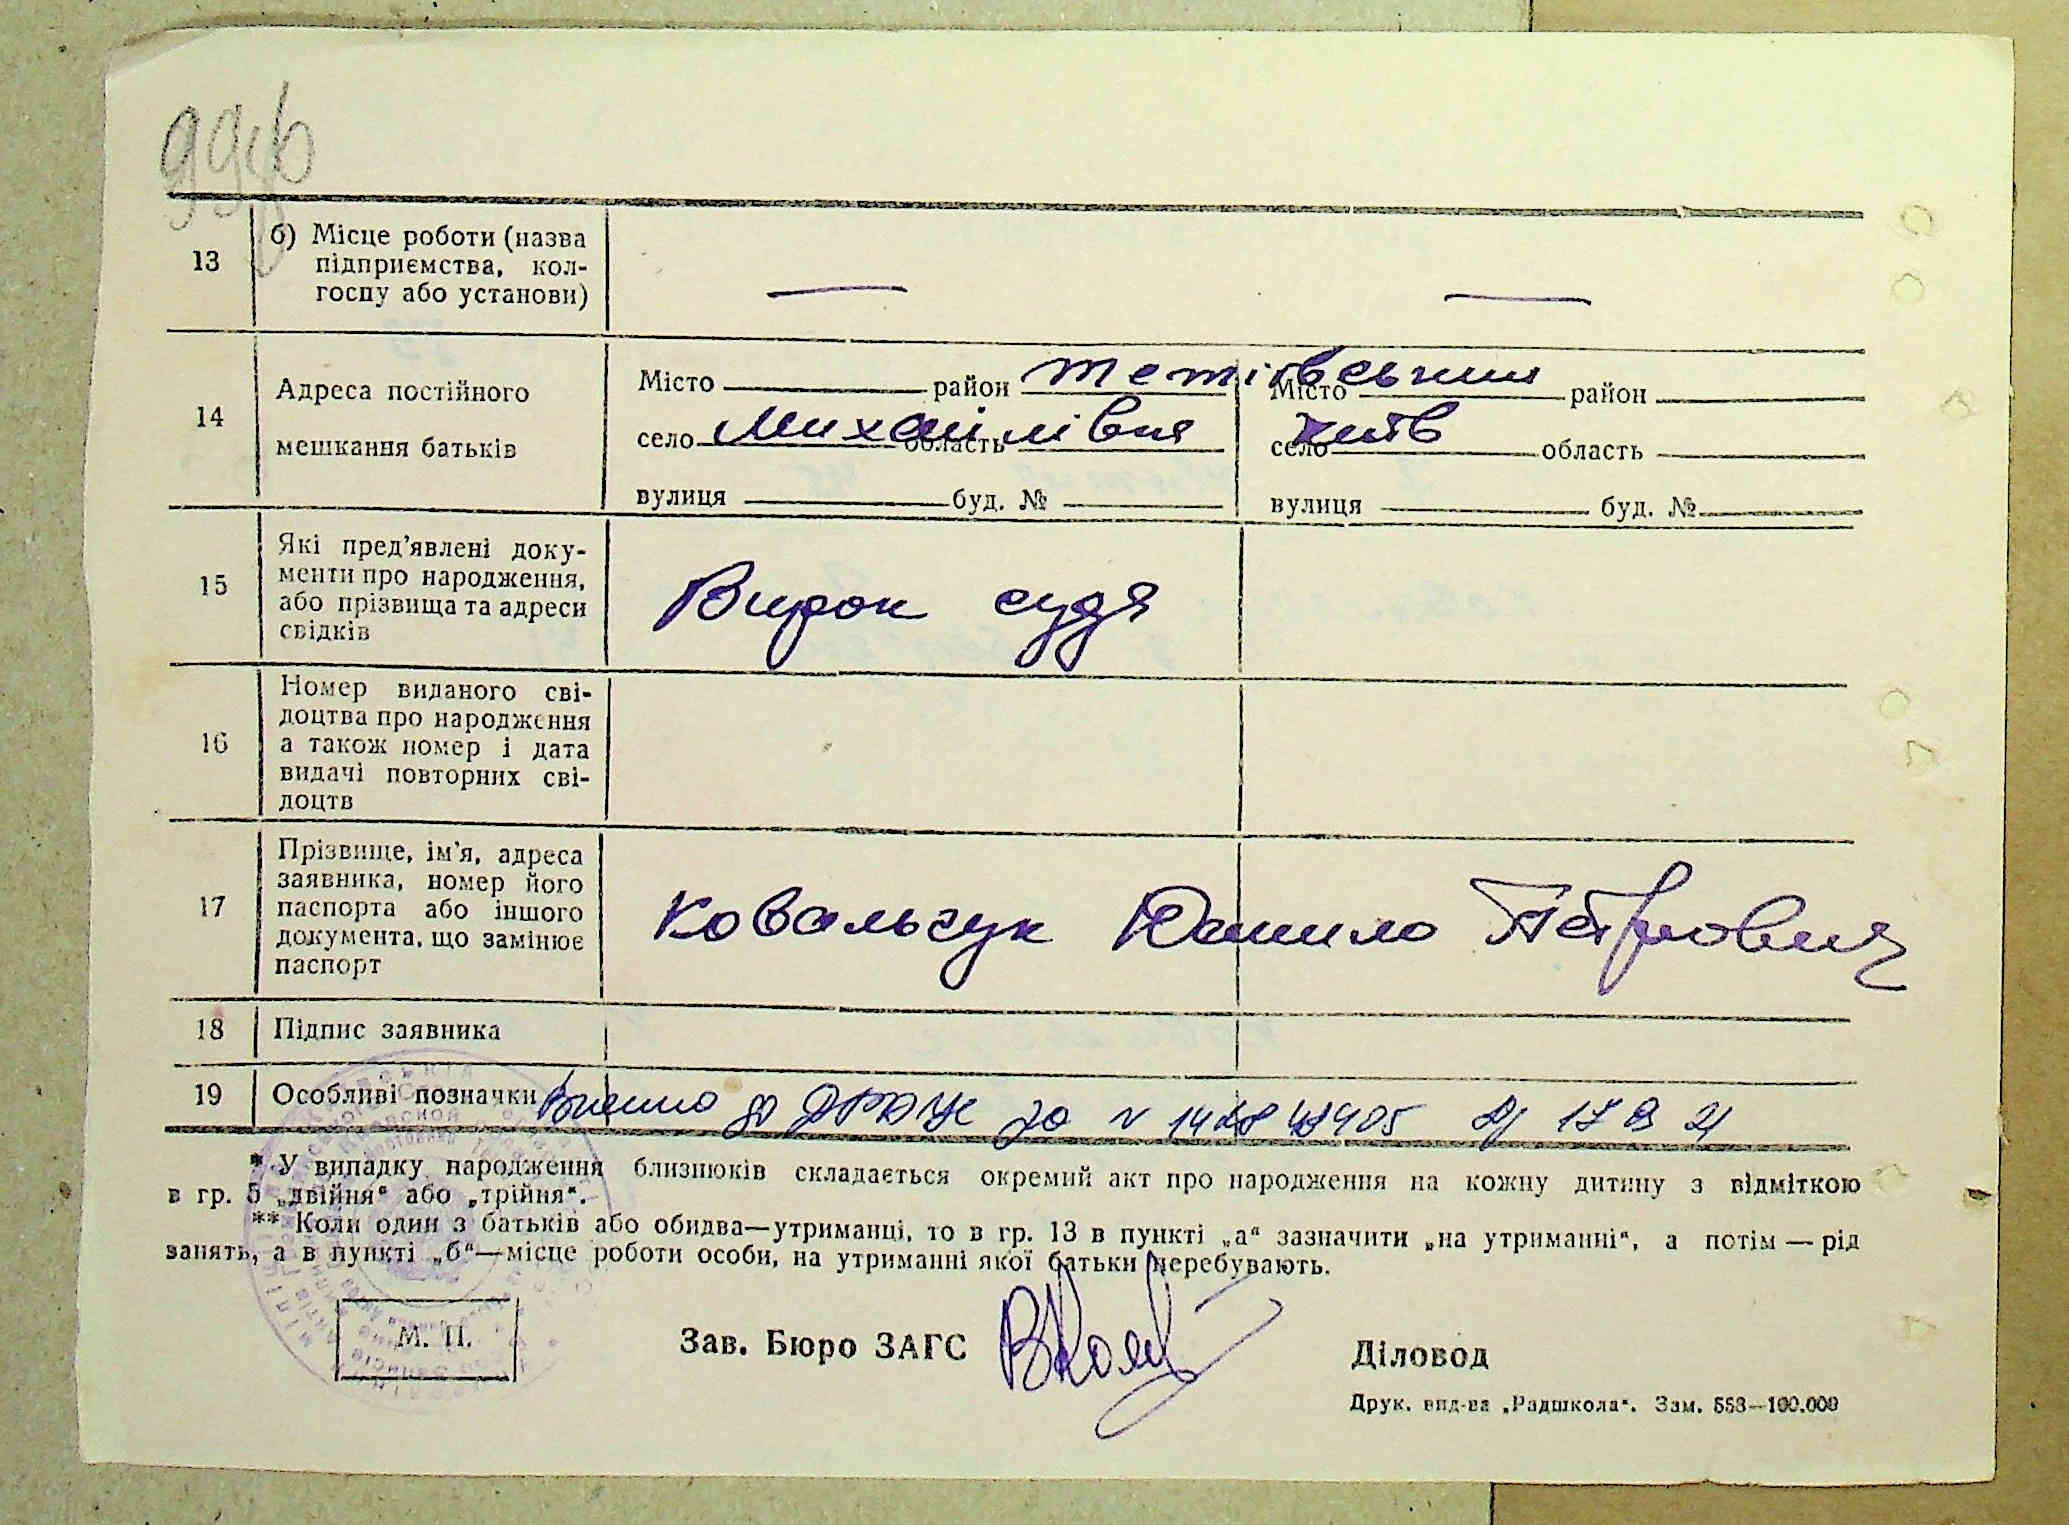 99
13
б) Місце роботи (назва
підприємства, кол-
госпу або установи)
14
Адреса постійного
мешкання батьків
Місто район Тетіївський Місто район
село Михайлівка область село київ область
вулиця буд. № вулиця буд. №
15
Які пред’явлені доку-
менти про народження,
або прізвища та адреси
свідків
Вирок суда
16
Номер виданого сві-
доцтва про народження
а також номер і дата
видачі повторних сві-
доцтв
17
Прізвище, ім’я, адреса
заявника, номер його
паспорта або іншого
документа, що замінює
паспорт
Ковальчук Данило Петрович
18 Підпис заявника
19 Особливі позначки Внесено до ДРАЦС за №
* У випадку народження близнюків складається окремий акт про народження на кожну дитину з відміткою
в гр. 5 „двійня“ або „трійня“.
** Коли один з батьків або обидва—утриманці, то в гр. 13 в пункті „а“ зазначити „на утриманні“, а потім — рід
занять, а в пункті „б“—місце роботи особи, на утриманні якої батьки перебувають.
М. П.
Зав. Бюро ЗАГС
Діловод
Друк. вид-ва „Радшкола“. Зам. 553—100.000